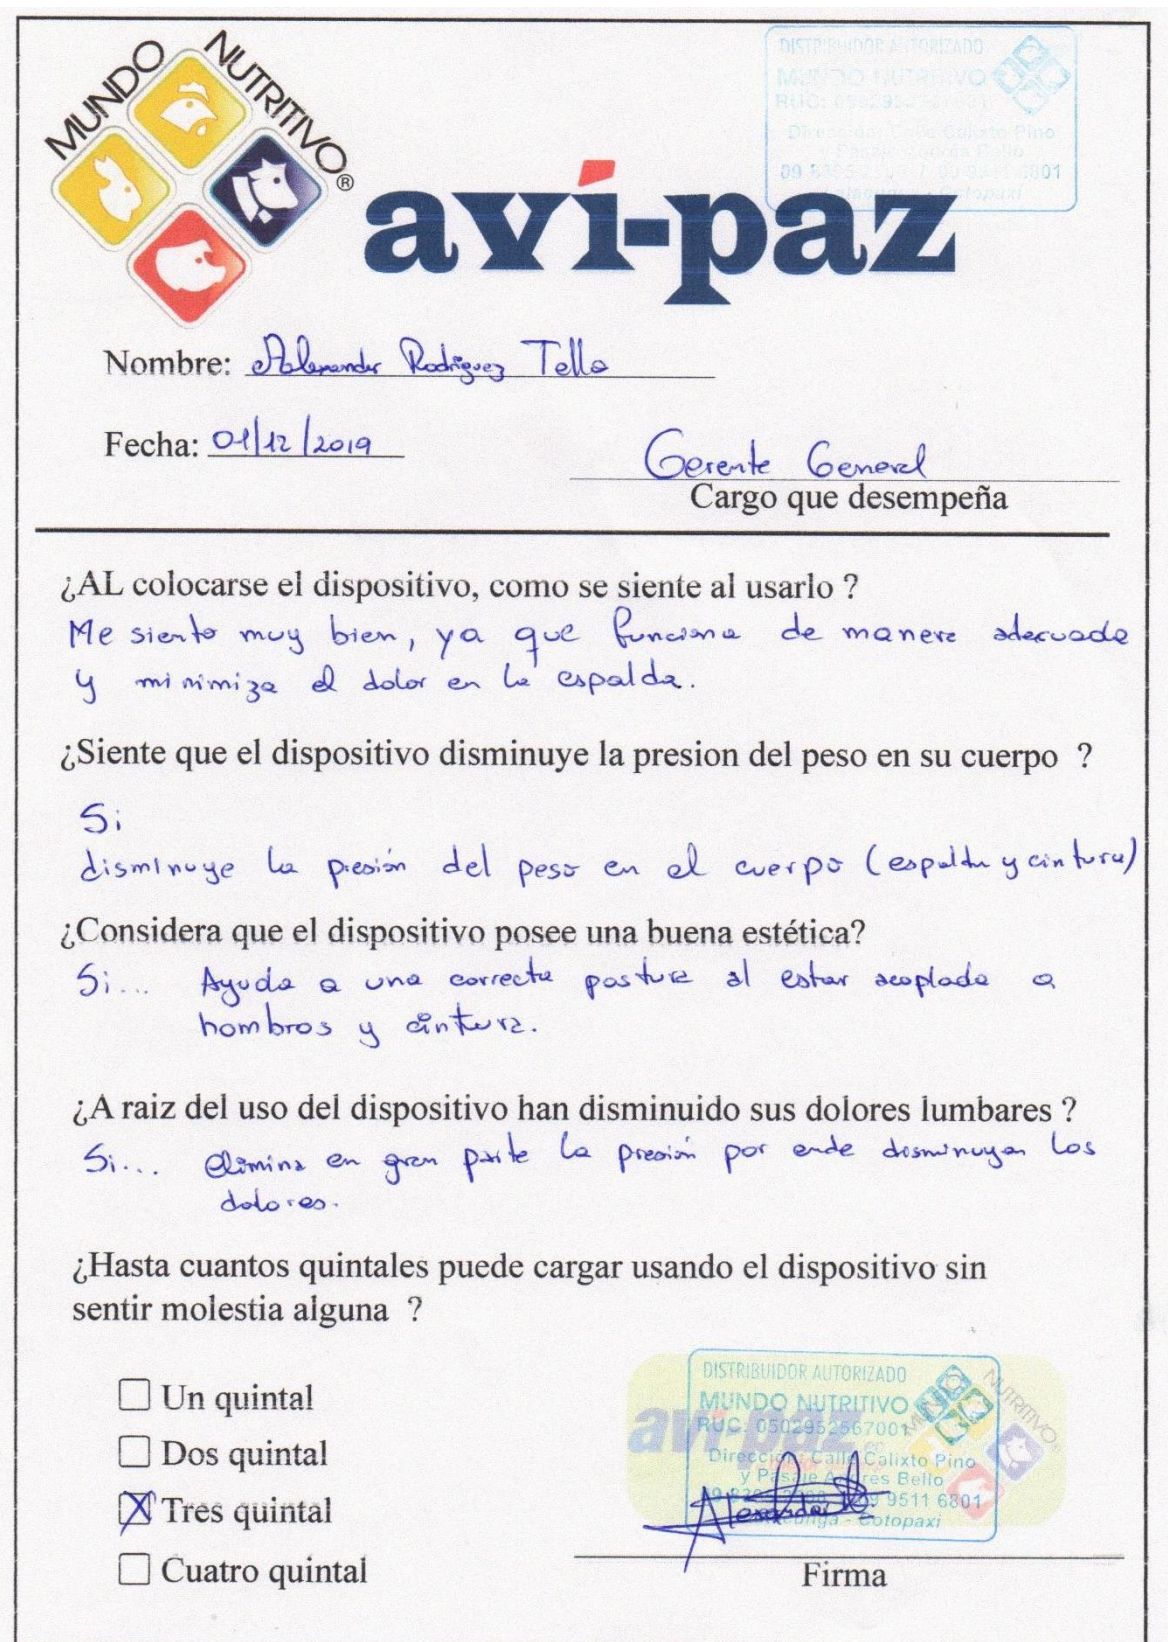 MUNDO NUTRITIVO®
DISTRIBUIDOR AUTORIZADO
MUNDO NUTRITIVO
Calixto Pino
avi-paz
Nombre: Alexander Rodriguez Tello
Fecha: 01/12/2019
Gerente General
Cargo que desempeña
¿AL colocarse el dispositivo, como se siente al usarlo ?
Me siento muy bien, ya que funciona de manera adecuada
y minimiza el dolor en la espalda.
¿Siente que el dispositivo disminuye la presion del peso en su cuerpo ?
Si
disminuye la presión del peso en el cuerpo (espalda y cintura)
¿Considera que el dispositivo posee una buena estética?
Si... Ayuda a una correcta postura al estar acoplado a
hombros y cintura.
¿A raiz del uso del dispositivo han disminuido sus dolores lumbares ?
Si... elimina en gran parte la presión por ende disminuyen los
dolores.
¿Hasta cuantos quintales puede cargar usando el dispositivo sin
sentir molestia alguna ?
Un quintal
Dos quintal
Tres quintal
Cuatro quintal
DISTRIBUIDOR AUTORIZADO
MUNDO NUTRITIVO
RUC: 0502952567001
Dirección: Calle Calixto Pino
y Pasaje Andrés Bello
9511 6801
Cotopaxi
avi-paz
NUTRITIVO®
Alexander
Firma